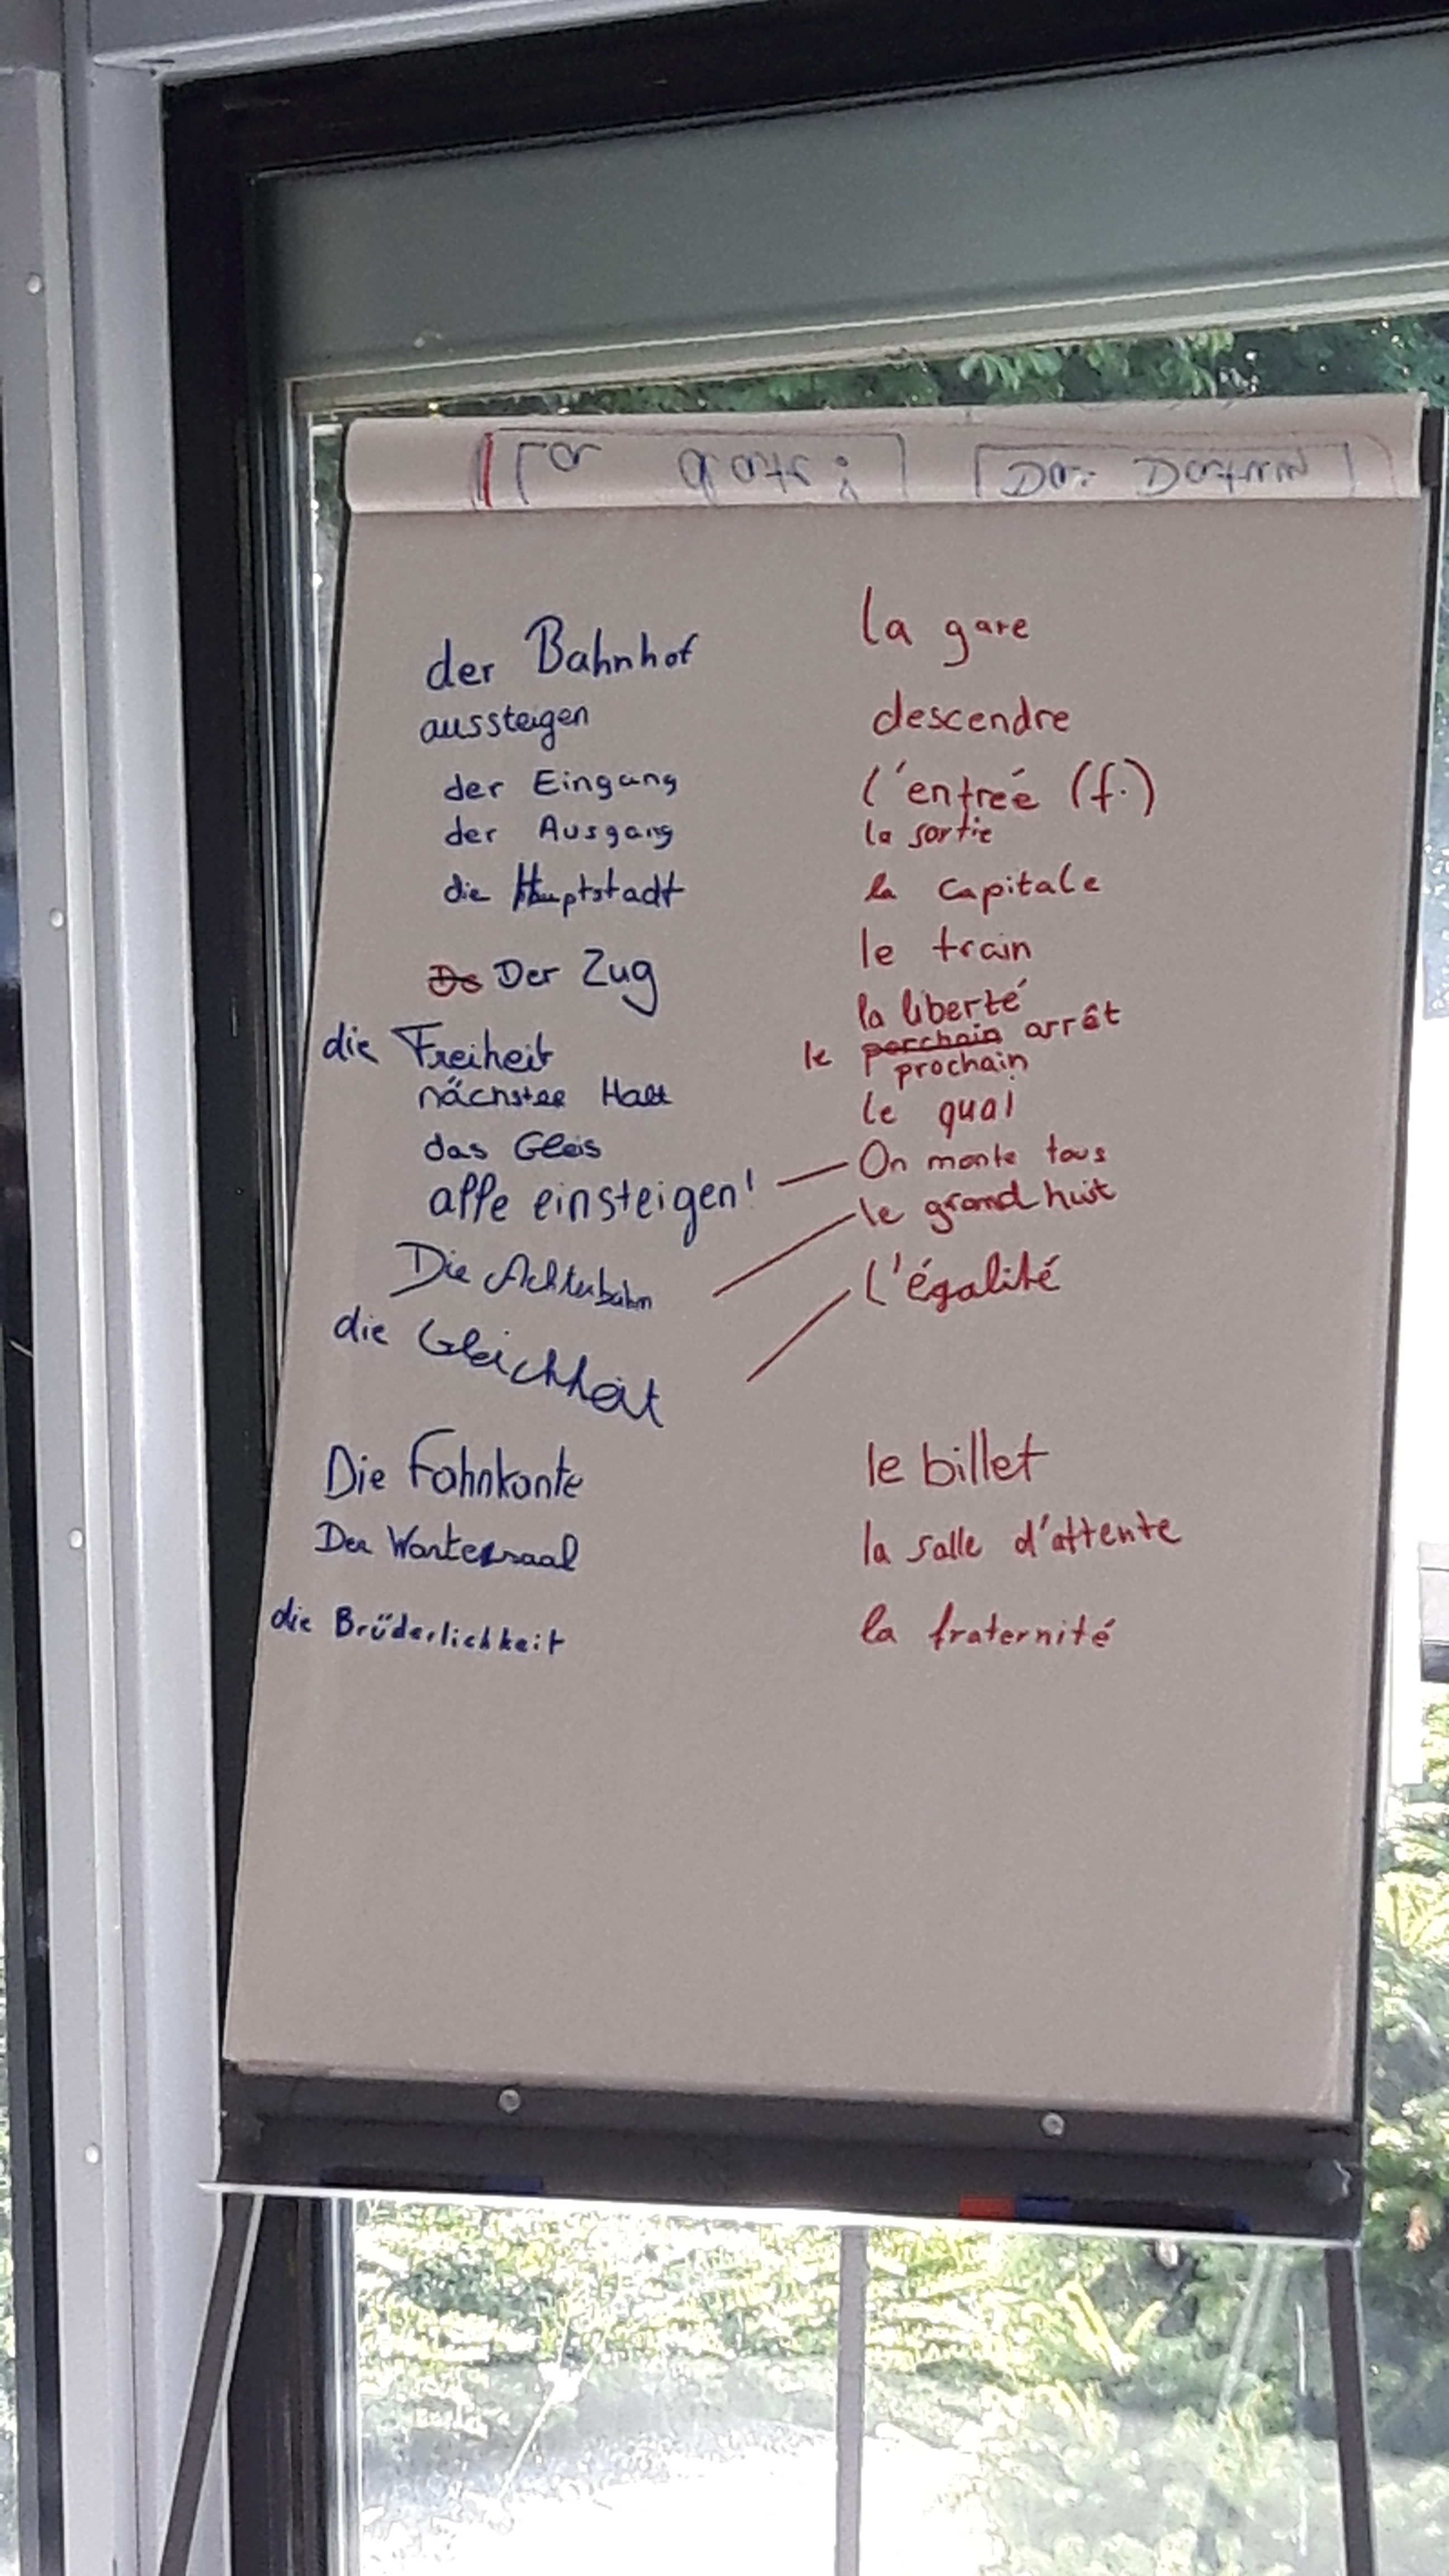 der Bahnhof la gare
aussteigen descendre
der Eingang l'entrée (f.)
der Ausgang la sortie
die Hauptstadt la capitale
De Der Zug le train
die Freiheit la liberté
nächster Halt le porchain arrêt
prochain
das Gleis le quai
alle einsteigen! On monte tous
Die Achterbahn le grand huit
die Gleichheit l'égalité
Die Fahrkarte le billet
Der Wartesaal la salle d'attente
die Brüderlichkeit la fraternité